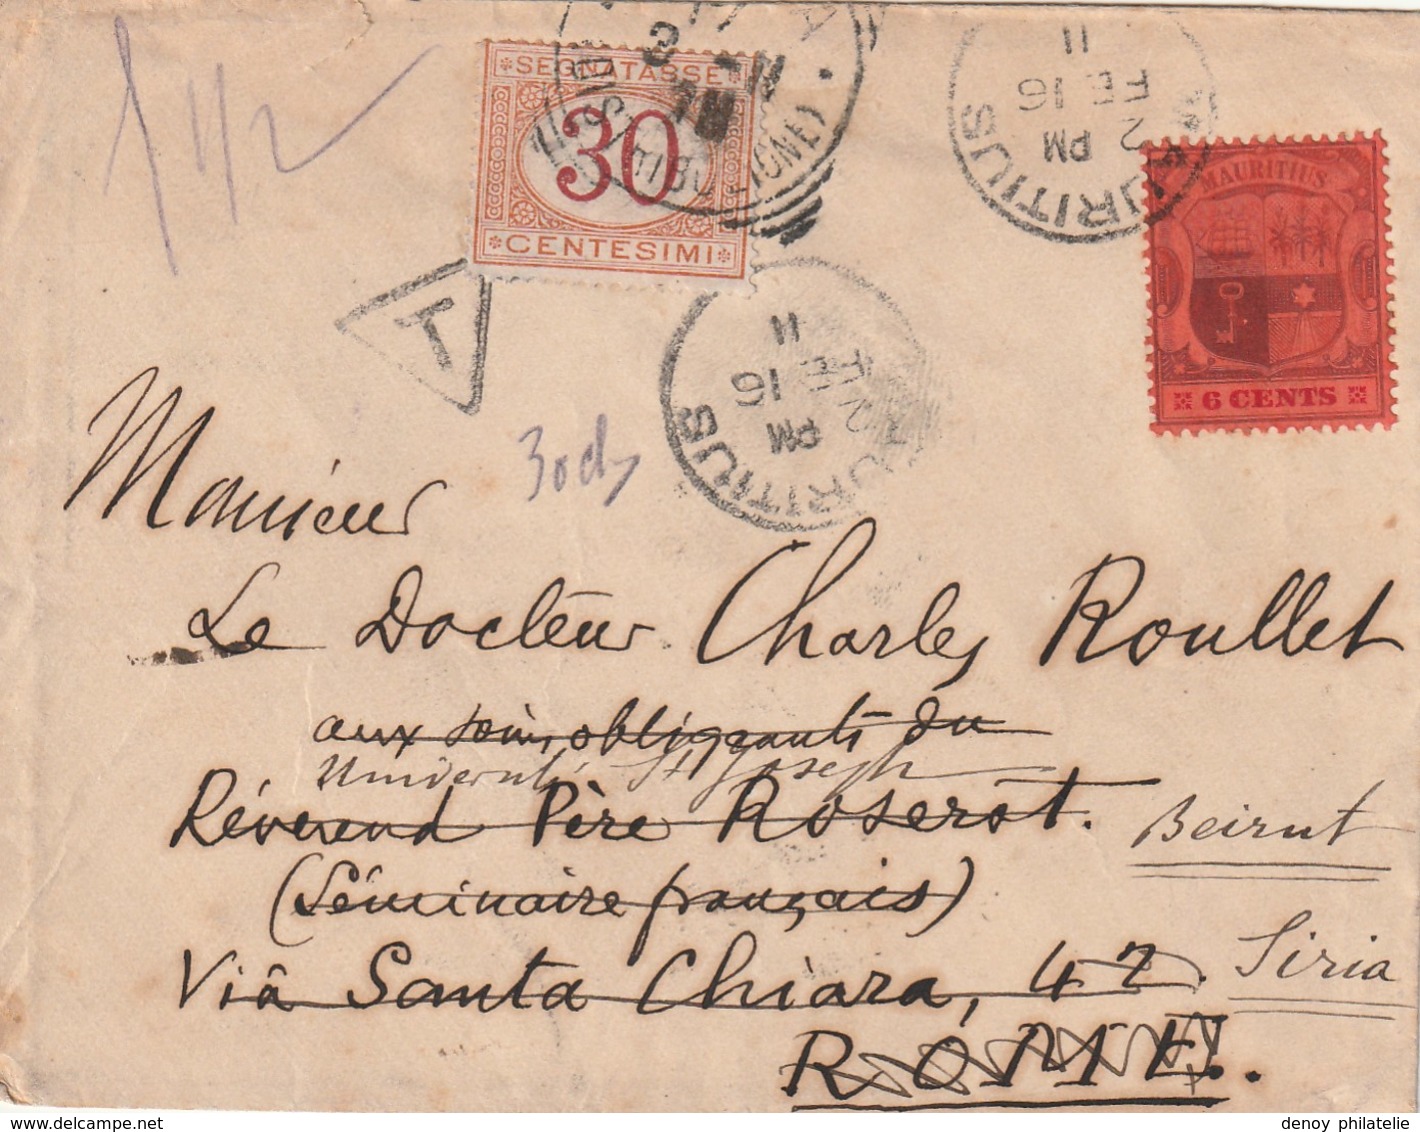 SEGNATASSE
30
CENTESIMI
DISTRIBUZIONE)
T
MAURITIUS
2 PM
FE 16
11
MAURITIUS
6 CENTS
MAURITIUS
PM
16
11
Monsieur
Le Docteur Charles Roullet
aux soins obligeants du
Université St Joseph
Révérend Père Roserot.
Beirut
(Séminaire français)
Siria
Via Santa Chiara, 42.
ROME.
denoy philatelie